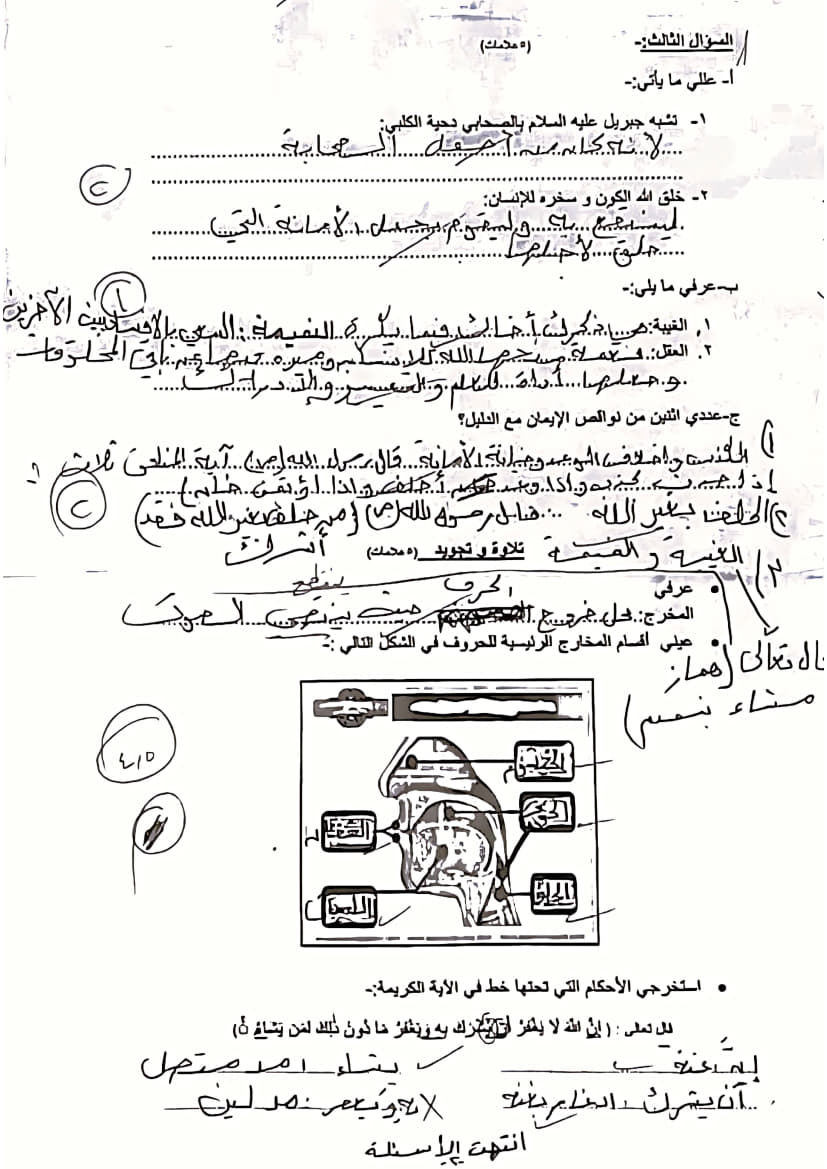 السؤال الثالث:- (٥ علامات)
أ- عللي ما يأتي:-
١- تشبه جبريل عليه السلام بالصحابي دحية الكلبي:
لأنه كان من أجمل الصحابة
٢- خلق الله الكون و سخره للإنسان:
لينتفع به وليقوم بحمل الأمانة التي
خلق لأجلها
ب-عرفي ما يلي:-
١. الغيبة: هي ذكرك أخا لك فيما يكره النميمة: السعي بالإفساد بين الآخرين
٢. العقل: نعمة منحها الله للإنسان وميزه بها عن باقي المخلوقات
وجعلها أداة للعلم والتمييز والإدراك
ج-عددي اثنين من نواقص الإيمان مع الدليل؟
١) الكذب واخلاف الوعد وخيانة الأمانة قال رسول الله (ص) آية المنافق ثلاث :
إذا حدث كذب وإذا وعد أخلف وإذا اؤتمن خان)
٢) الحلف بغير الله قال رسول الله (ص) (من حلف بغير الله فقد
أشرك
٣/ الغيبة والنميمة
قال تعالى (هماز
مشاء بنميم)
تلاوة و تجويد (٥ علامات)
• عرفي
المخرج: محل خروج الحرف حيث ينقطع الصوت
• عيني أقسام المخارج الرئيسية للحروف في الشكل التالي :-
الخيشوم
الجوف
الشفتان
الحلق
اللسان
٤,٥
• استخرجي الأحكام التي تحتها خط في الآية الكريمة:-
قال تعالى : ( إِنَّ اللَّهَ لَا يَغْفِرُ أَن يُشْرَكَ بِهِ وَيَغْفِرُ مَا دُونَ ذَٰلِكَ لِمَن يَشَاءُ )
إنّ غنة يشاء : مد متصل
أن يشرك : ادغام بغنة به ويغفر : مد لين
انتهت الأسئلة